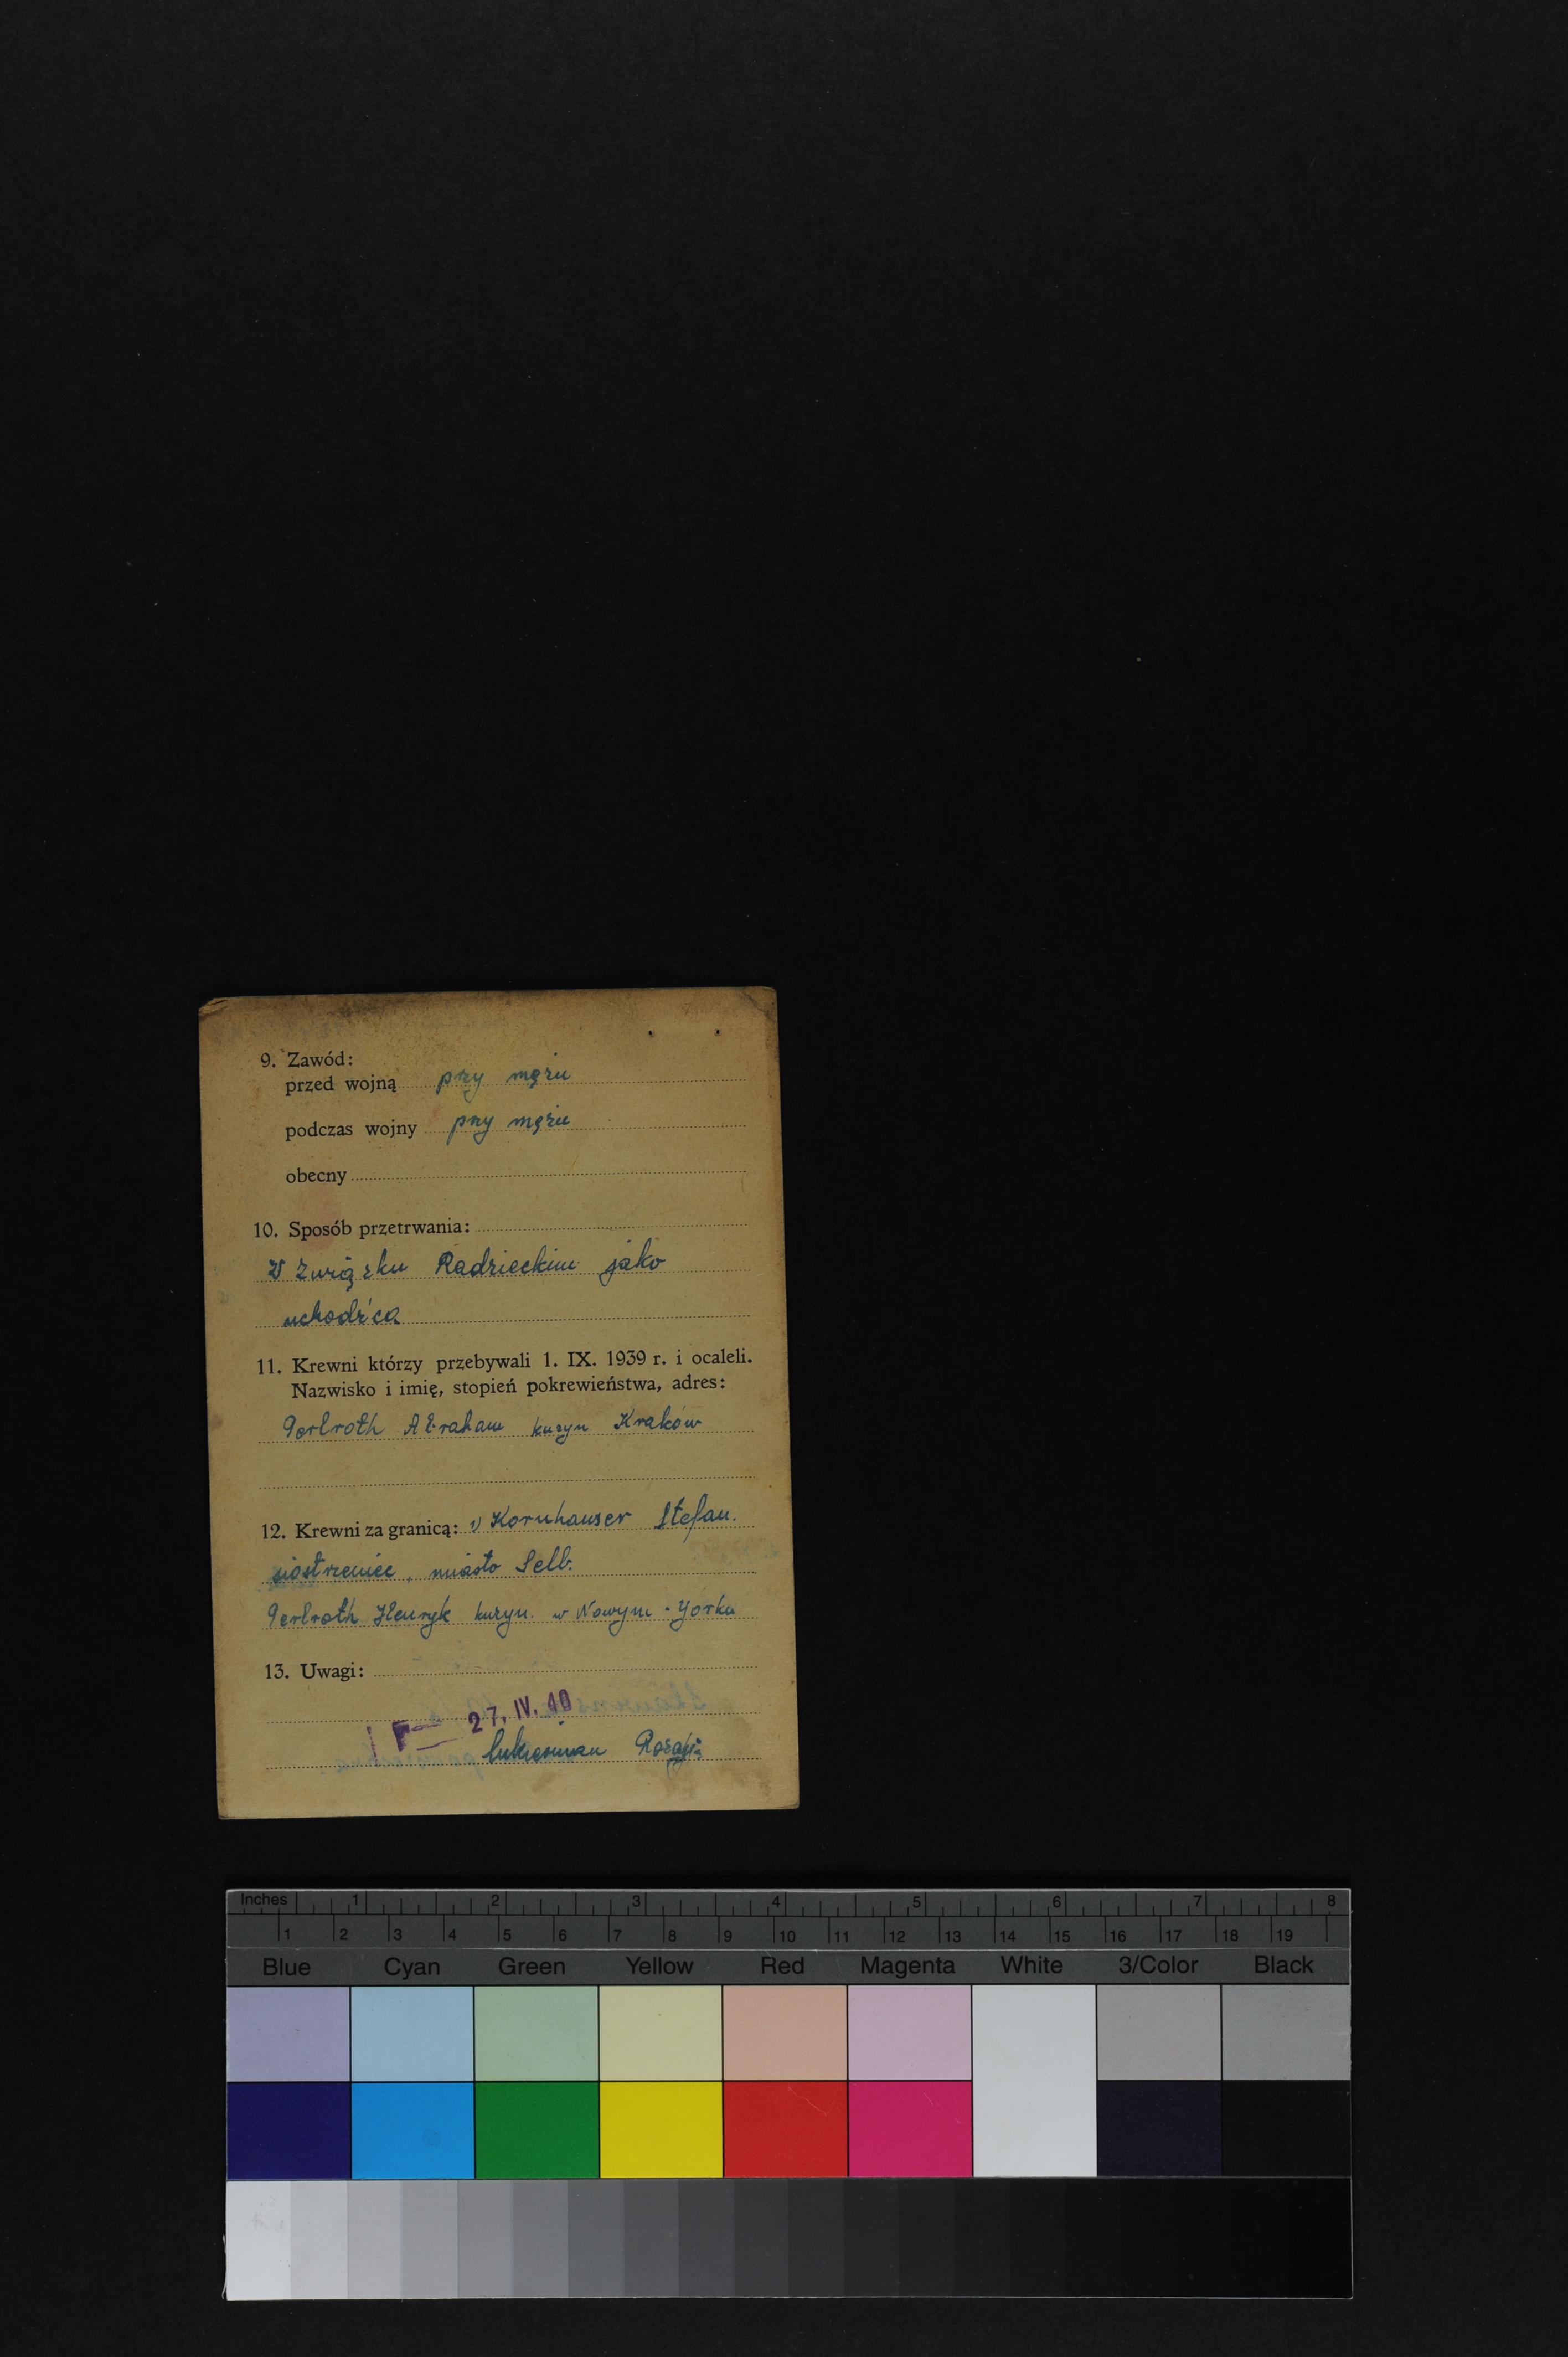 9. Zawód:
przed wojną przy mężu
podczas wojny przy mężu
obecny
10. Sposób przetrwania:
W Związku Radzieckim jako
uchodźca
11. Krewni którzy przebywali 1. IX. 1939 r. i ocaleli.
Nazwisko i imię, stopień pokrewieństwa, adres:
Perlroth Abraham kuzyn Kraków
12. Krewni za granicą: 1) Kornhauser Stefan.
siostrzeniec, miasto Selb.
Perlroth Henryk kuzyn. w Nowym-Yorku
13. Uwagi:
F— 27. IV. 
Inches 1 2 3 4 5 6 7 8
1 2 3 4 5 6 7 8 9 10 11 12 13 14 15 16 17 18 19
Blue Cyan Green Yellow Red Magenta White 3/Color Black